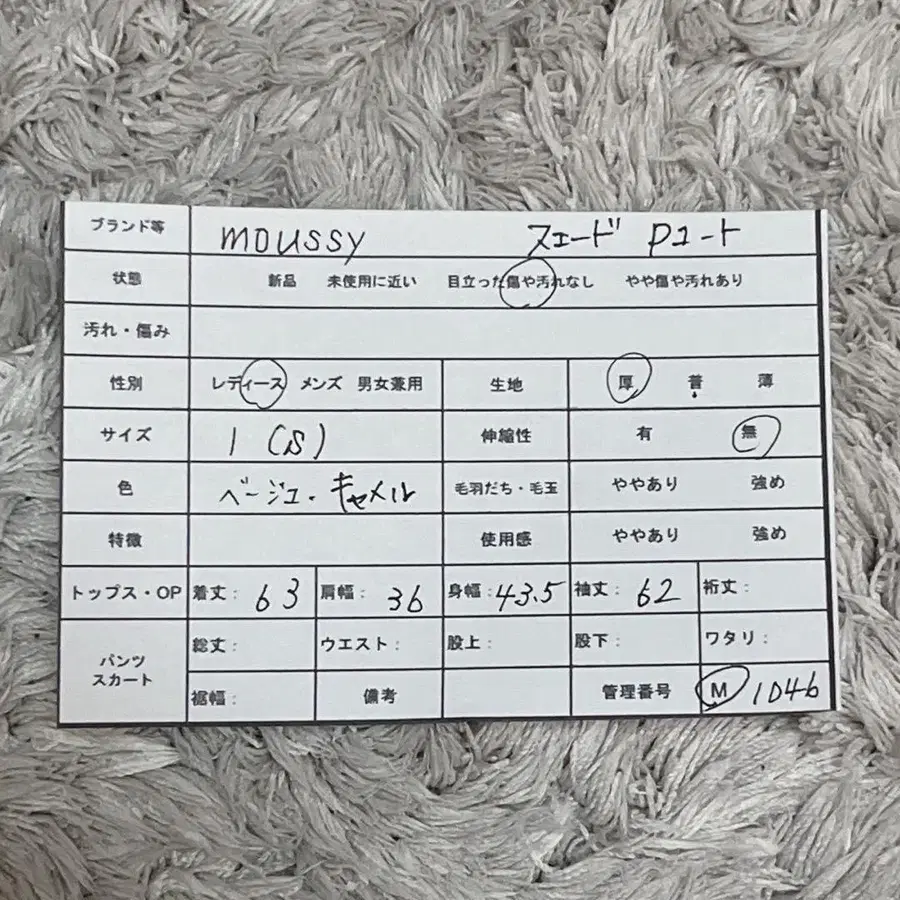 ブランド等 moussy スエード Pコート
状態 新品 未使用に近い 目立った傷や汚れなし やや傷や汚れあり
汚れ・傷み
性別 レディース メンズ 男女兼用 生地 厚 普 薄
サイズ 1 (S) 伸縮性 有 無
色 ベージュ・キャメル 毛羽だち・毛玉 ややあり 強め
特徴 使用感 ややあり 強め
トップス・OP 着丈: 63 肩幅: 36 身幅: 43.5 袖丈: 62 裄丈:
パンツ スカート 総丈: ウエスト: 股上: 股下: ワタリ:
裾幅: 備考 管理番号 M 1046